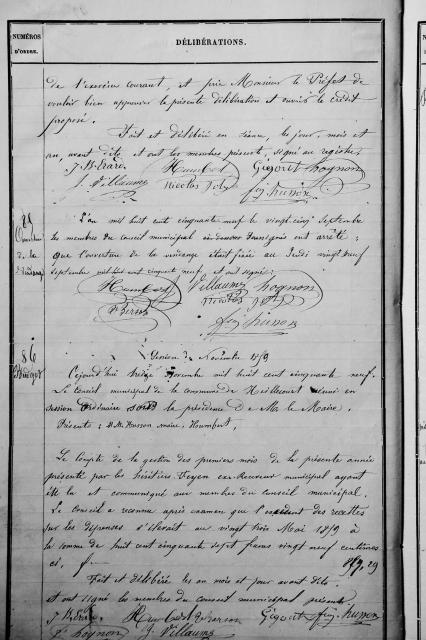 NUMÉROS
D'ORDRE.
DÉLIBÉRATIONS.
de l'exercice courant, et prie Monsieur le Préfet de
vouloir bien approuver la présente délibération et ouvrir le crédit
proposé.
Fait et délibéré en séance, les jour, mois et
an, avant dits, et ont les membres présents, signé au registre
Humbert Gigout Hognon
J. Villaume Nicolas Husson
L'an mil huit cent cinquante neuf le vingt cinq Septembre
les membres du Conseil municipal ont arrêté :
que l'ouverture de la vendange était fixée au Jeudi vingt neuf
septembre mil huit cent cinquante neuf, et ont signé :
Humbert Villaume Hognon
Husson
86
Budget
Session de Novembre 1859
Cejourd'hui Novembre mil huit cent cinquante neuf.
Le Conseil municipal de la commune de Heillecourt réuni en
session ordinaire sous la présidence de Mr le Maire.
Présents : M.M. Husson maire, Humbert,
Le Compte de la gestion des premiers mois de la présente année
présenté par les héritiers ex-Receveur municipal ayant
été lu et communiqué aux membres du Conseil municipal.
Le Conseil a reconnu après examen que l'excédent des recettes
sur les dépenses s'élevait au vingt trois Mai 1859 à
la somme de huit cent cinquante sept francs vingt neuf centimes
ci. f. 857,29
Fait et délibéré les an mois et jour avant dits
et ont signé les membres du conseil municipal présents
Humbert Gigout Husson
Hognon J. Villaume